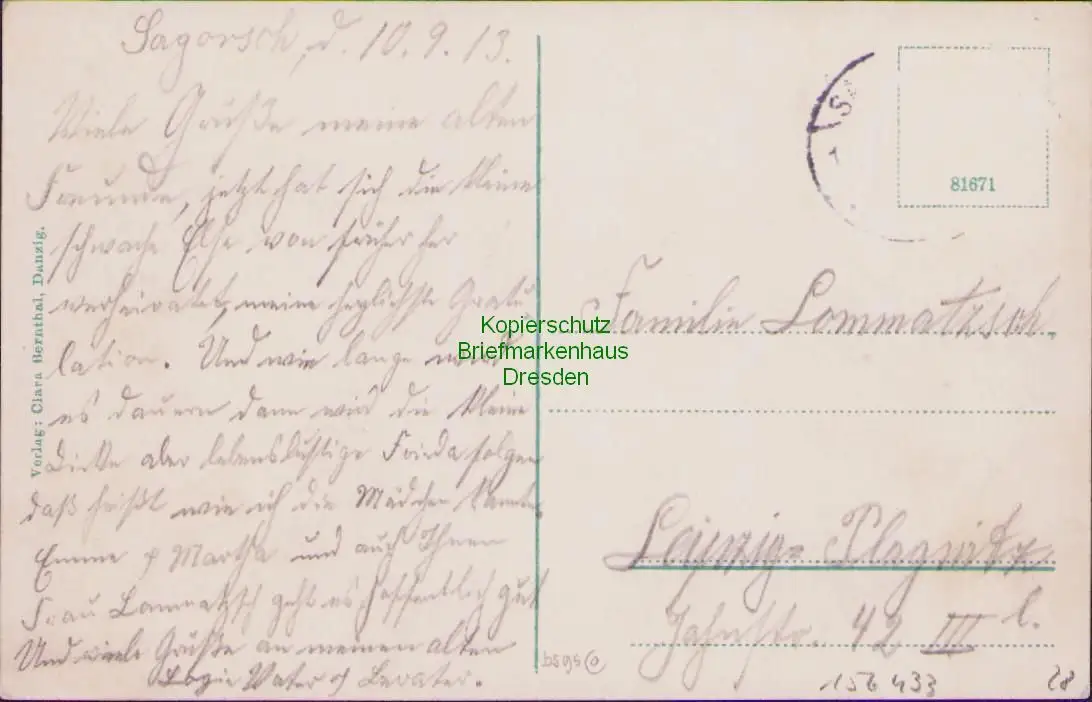 Sagorsch, d. 10.9.13.
Viele Grüße meine alten
Freunde, jetzt hat sich die kleine
schwache Else von früher her
verheiratet, meine herzlichste Gratu
lation. Und wie lange wird
es dauern dann wird die kleine
dicke aber lebenslustige Frieda folgen
daß heißt wie ich die Mädchen kannte.
Emme & Martha und auch Ihnen
Frau Lommatzsch geht es hoffentlich gut
Und viele Grüße an meinen alten
Logie Vater & Berater.
Verlag: Clara Bernthal, Danzig.
81671
Kopierschutz
Briefmarkenhaus
Dresden
Familie Lommatzsch.
Leipzig-Plagwitz
Jahnstr. 42 III l.
156433
28